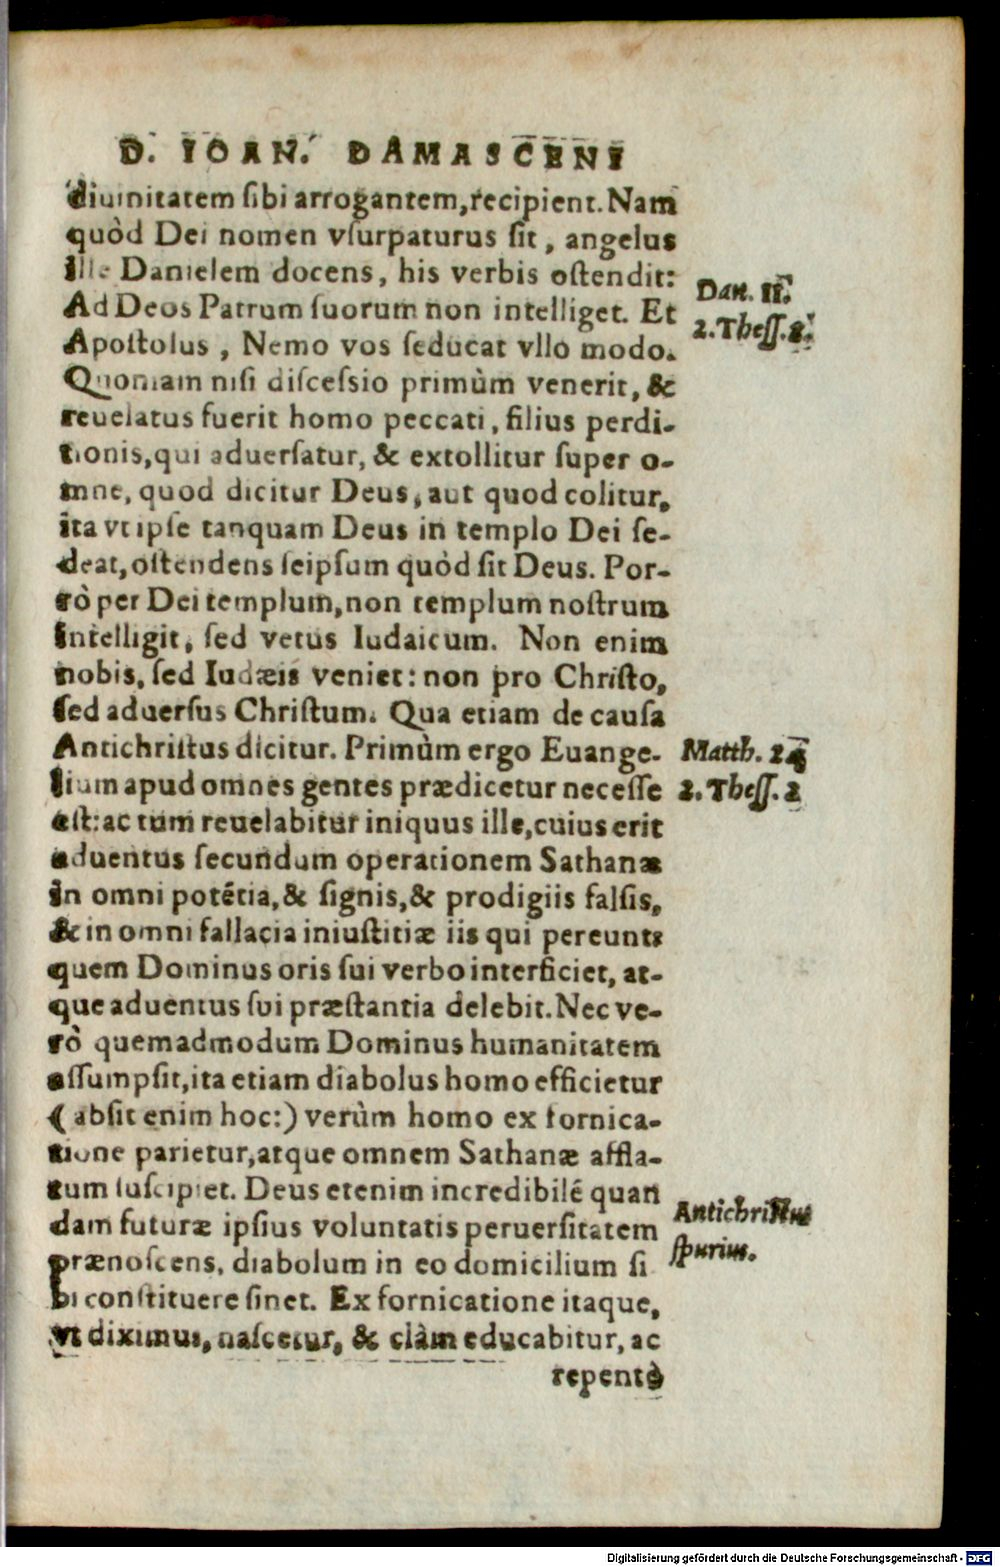 D. IOAN. DAMASCENI
diuinitatem sibi arrogantem, recipient. Nam
quòd Dei nomen vsurpaturus sit, angelus
ille Danielem docens, his verbis ostendit:
Dan. 11.
Ad Deos Patrum suorum non intelliget. Et
2. Thess. 2.
Apostolus, Nemo vos seducat vllo modo.
Quoniam nisi discessio primùm venerit, &
reuelatus fuerit homo peccati, filius perdi-
tionis, qui aduersatur, & extollitur super o-
mne, quod dicitur Deus, aut quod colitur,
ita vt ipse tanquam Deus in templo Dei se-
deat, ostendens seipsum quòd sit Deus. Por-
rò per Dei templum, non templum nostrum
intelligit, sed vetus Iudaicum. Non enim
nobis, sed Iudæis veniet: non pro Christo,
sed aduersus Christum. Qua etiam de causa
Antichristus dicitur. Primùm ergo Euange-
Matth. 24
lium apud omnes gentes prædicetur necesse
2. Thess. 2
est: ac tum reuelabitur iniquus ille, cuius erit
aduentus secundum operationem Sathanæ
in omni potẽtia, & signis, & prodigiis falsis,
& in omni fallacia iniustitiæ iis qui pereunt:
quem Dominus oris sui verbo interficiet, at-
que aduentus sui præstantia delebit. Nec ve-
rò quemadmodum Dominus humanitatem
assumpsit, ita etiam diabolus homo efficietur
(absit enim hoc:) verùm homo ex fornica-
tione parietur, atque omnem Sathanæ affla-
tum suscipiet. Deus etenim incredibilẽ quan
Antichristus
dam futuræ ipsius voluntatis peruersitatem
spurius.
prænoscens, diabolum in eo domicilium si
bi constituere sinet. Ex fornicatione itaque,
vt diximus, nascetur, & clàm educabitur, ac
repentè
Digitalisierung gefördert durch die Deutsche Forschungsgemeinschaft - DFG